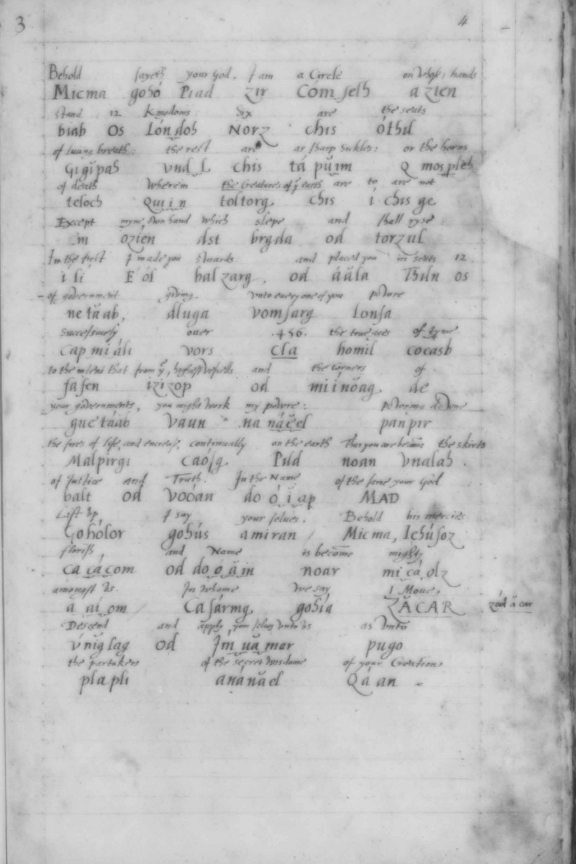 3 4
Behold sayeth your God. I am a Circle on whose hands
Micma goho Piad zir Comselh azien
stand 12 Kingdoms: Six are the seats
biab Os Lóndoh Norz chis óthil
of living breath: the rest are as sharp sickles: or the horns
Gigipah vnd_L chis tá puim Q mospleh
of death wherein the Creatures of ye earth are to are not
teloch Qui in toltorg chis i chis ge
Except myne own hand which slepe and shall ryse
m ozien dst brgda od torzul
In the first I made you stuards and placed you in seats 12
i li E ól balzarg, od áàla Thiln os
of government giving unto every one of you powre
ne tá ab, dluga vomsarg lonsa
successively over 456. the true ages of tyme
Cap mi áli vors Cla homil cocasb
to the intent that from ye highest vessells and the Corners of
fafen izizop od mi i nóag de
your governments, you might work my powre: powring downe
gne táab vaun na ná é el panpir
the fires of life, and encrease, continually on the earth Thus you are become the skirts
Malpirgi caósg. Pild noan vnalah
of Justice and Truth. In the Name of the same your God
balt od vóóan do ó i ap MAD
Lift up, I say your selves. Behold his mercies
Gohólor gohús amiran / Micma, Iehúsoz
florish and Name is become mighty
ca cá com od do o á in noar mi cá olz
amongst us. In whome we say Move,
a aí om / Casármg. gohia ZACAR zod a car
Descend and apply your selves unto us as unto
vniglag od Im uá mar pugo
the partakers of the secret wisdome of your Creation
plapli ananael Qá an.